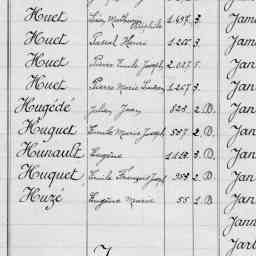 Huet Léon Mathurin Baptiste 1.497. 3. Jame
Huet Pascal Henri 1.255. 3. Jame
Huet Pierre Emile Joseph 2.027. 5. Jan
Huet Pierre Marie Lucien 1.257 3. Jan
Hugédé Julien Jean 825. 2 D. Jan
Huguet Emile Marie Joseph 557. 2. D. Jan
Hunault Eugène 1.113. 3. D. Jan
Huquet Emile François Joseph 953. 2. D. Jan
Huzé Eugène Marie 55 1. D. Jan
Jan
Jann
Jar